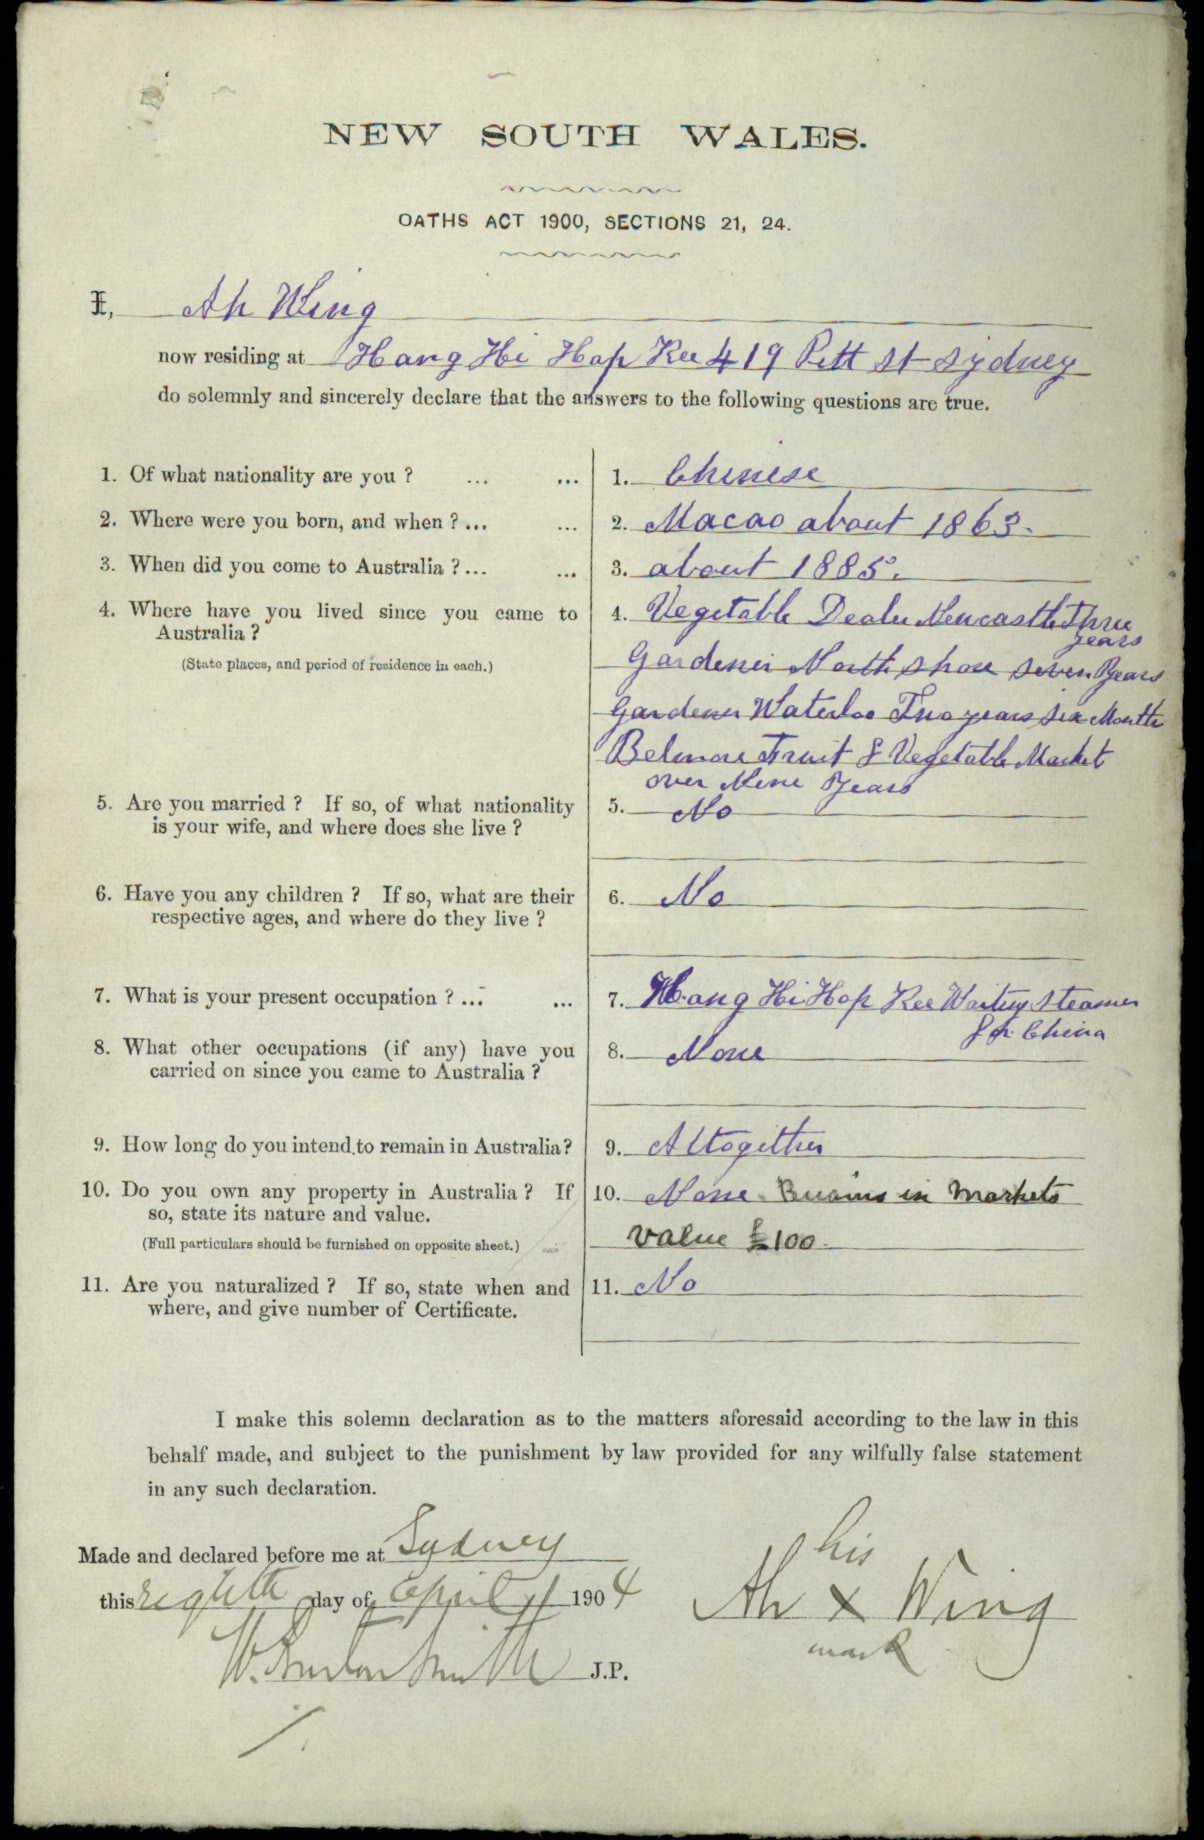 NEW SOUTH WALES.
OATHS ACT 1900, SECTIONS 21, 24.
I, Ah Wing
now residing at Hang Hi Hop Kee 419 Pitt St Sydney
do solemnly and sincerely declare that the answers to the following questions are true.
1. Of what nationality are you ? ... ... 1. Chinese
2. Where were you born, and when ? ... ... 2. Macao about 1863.
3. When did you come to Australia ? ... ... 3. about 1885.
4. Where have you lived since you came to 4. Vegetable Dealer Newcastle Three
Australia ? years
(State places, and period of residence in each.) Gardener North Shore Seven Years
Gardener Waterloo Two years six Months
Belmore Fruit & Vegetable Market
over Nine Years
5. Are you married ? If so, of what nationality 5. No
is your wife, and where does she live ?
6. Have you any children ? If so, what are their 6. No
respective ages, and where do they live ?
7. What is your present occupation ? ... ... 7. Hang Hi Hop Kee Waiting Steamer
for China
8. What other occupations (if any) have you 8. None
carried on since you came to Australia ?
9. How long do you intend to remain in Australia? 9. Altogether
10. Do you own any property in Australia ? If 10. None. in Markets
so, state its nature and value. value £100.
(Full particulars should be furnished on opposite sheet.)
11. Are you naturalized ? If so, state when and 11. No
where, and give number of Certificate.
I make this solemn declaration as to the matters aforesaid according to the law in this
behalf made, and subject to the punishment by law provided for any wilfully false statement
in any such declaration.
Made and declared before me at Sydney
this eighth day of April 1904
his
Ah x Wing
mark
W. Burton Smith J.P.